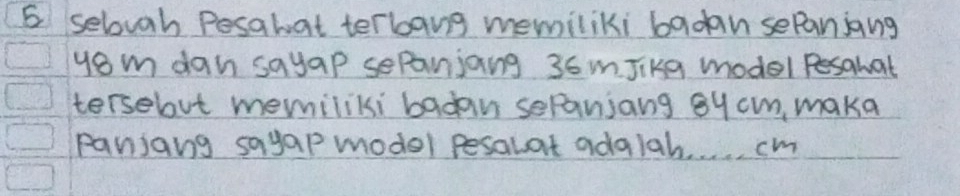 5 sebuah Pesawat terbang memiliki badan sepanjang
48 m dan sayap sepanjang 36 m Jika model Pesawat
tersebut memiliki badan sepanjang 84 cm, maka
panjang sayap model pesawat adalah...... cm